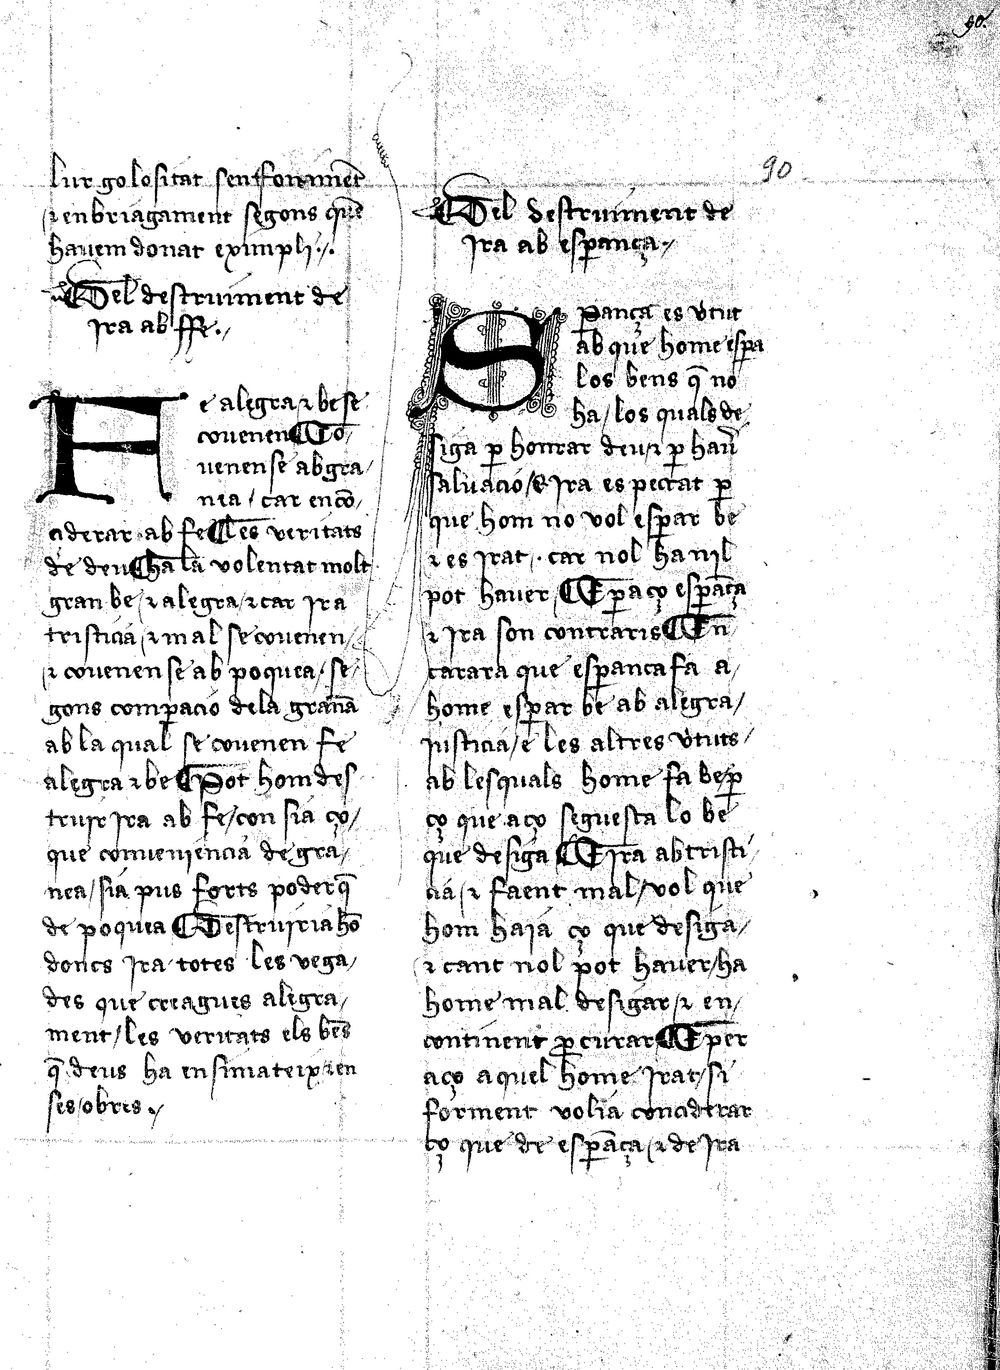 90.
90
lur golositat sentfonimēt
⁊ enbriagament segons quē
havem donat eximpli·/.
¶ Del destruiment de
Ira ab ffe·/
F e alegra ⁊ be se
covenen ¶ Co/
venen se ab gra/
nea / car encō/
ciderar ab fe ¶ les veritats
de deu ¶ ha la volentat molt
gran be / ⁊ alegra / ⁊ car ira
tristicia / ⁊ mal se covenen /
⁊ covenen se ab poquea / se/
gons comꝑacio dela granā
ab la qual se covenen fe
alegra ⁊ be ¶ Pot hom des
truir ira ab fe / con sia ço /
que conveniencia de gra/
nea / sia pus forts poder q̄
de poquea ¶ Destruiria hō
doncs ira totes les vega/
des que creagues alegra/
ment / les veritats els bēs
q̄ deus ha en simateix / ⁊ en
ses obres·/
¶ Del destruiment de
Ira ab esꝑança·/
S ꝑança es v̄tut
ab que home esꝑa
los bens q̄ no
ha / los quals de/
siga ꝑ honrar deu / ⁊ ꝑ hav̄
salvacio / E ira es peccat ꝑ
que hom no vol esꝑar be
⁊ es irat · car nol ha nil
pot haver ¶ E ꝑ aço esꝑāça
⁊ ira son contraris ¶ En
carara que esꝑanca fa a/
home esꝑar be ab alegra/
justicia / e les altres v̄tuts /
ab lesquals home fa be ꝑ
ço que aço seguesca lo be
que desiga ¶ E ira ab tristi/
cia / ⁊ faent mal / vol que
hom haja ço que desiga /
⁊ cant nol pot haver / ha
home mal desigar / ⁊ en/
continent ꝓcurar ¶ E per
aço aquel home irat / si
forment volia conciderar
ço que de esꝑāça / ⁊ de ira